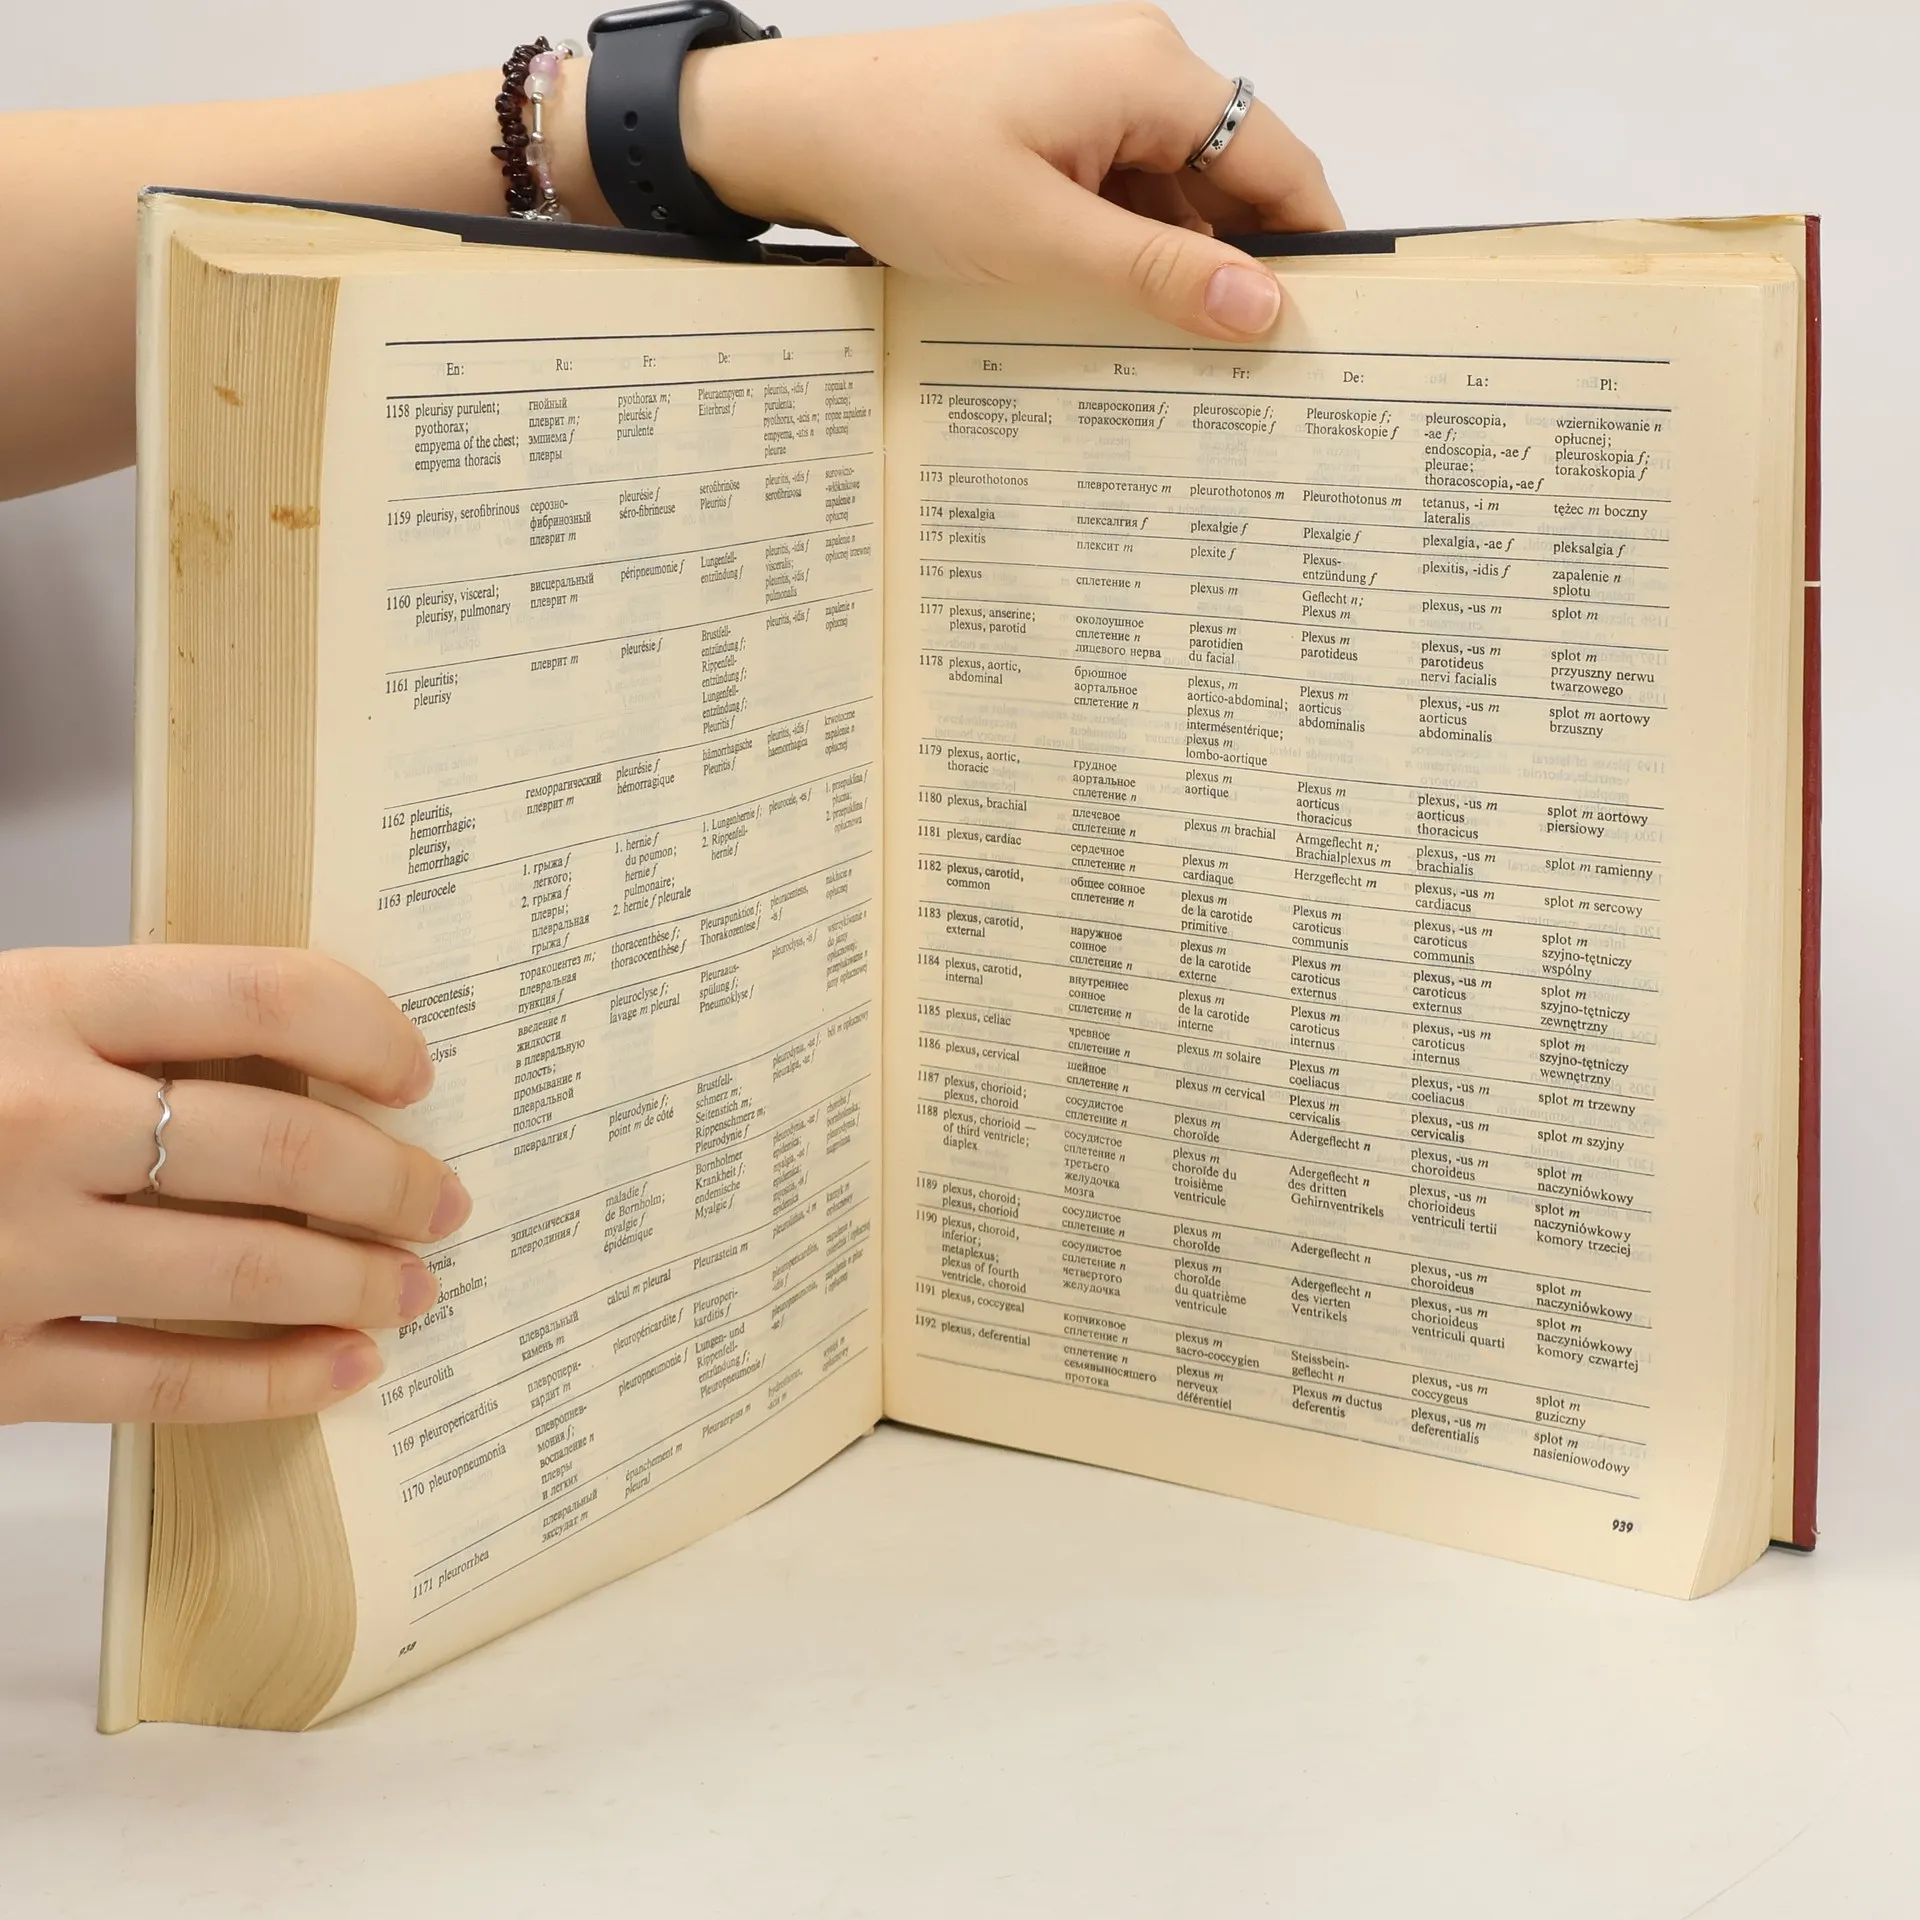 En:
Ru:
Fr:
De:
La:
Pl:
1158 pleurisy purulent;
pyothorax;
empyema of the chest;
empyema thoracis
гнойный
плеврит m;
эмпиема f
плевры
pyothorax m;
pleurésie f
purulente
Pleuraempyem n;
Eiterbrust f
pleuritis, -idis f
purulenta;
pyothorax, -acis m;
empyema, -atis n
pleurae
ropniak m
opłucnej;
ropne zapalenie n
opłucnej
1159 pleurisy, serofibrinous
серозно-
фибринозный
плеврит m
pleurésie f
séro-fibrineuse
serofibrinöse
Pleuritis f
pleuritis, -idis f
serofibrinosa
surowiczo-
-włóknikowe
zapalenie n
opłucnej
1160 pleurisy, visceral;
pleurisy, pulmonary
висцеральный
плеврит m
péripneumonie f
Lungenfell-
entzündung f
pleuritis, -idis f
visceralis;
pleuritis, -idis f
pulmonalis
zapalenie n
opłucnej trzewnej
1161 pleuritis;
pleurisy
плеврит m
pleurésie f
Brustfell-
entzündung f;
Rippenfell-
entzündung f;
Lungenfell-
entzündung f;
Pleuritis f
pleuritis, -idis f
zapalenie n
opłucnej
1162 pleuritis,
hemorrhagic;
pleurisy,
hemorrhagic
геморрагический
плеврит m
pleurésie f
hémorragique
hämorrhagische
Pleuritis f
pleuritis, -idis f
haemorrhagica
krwotoczne
zapalenie n
opłucnej
1163 pleurocele
1. грыжа f
легкого;
2. грыжа f
плевры;
плевральная
грыжа f
1. hernie f
du poumon;
hernie f
pulmonaire;
2. hernie f pleurale
1. Lungenhernie f;
2. Rippenfell-
hernie f
pleurocele, -es f
1. przepuklina f
płucna;
2. przepuklina f
opłucnowa
pleurocentesis;
oracocentesis
торакоцентез m;
плевральная
пункция f
thoracenthèse f;
thoracocenthèse f
Pleurapunktion f;
Thorakozentese f
pleuracentesis,
-is f
nakłucie n
opłucnej
clysis
введение n
жидкости
в плевральную
полость;
промывание n
плевральной
полости
pleuroclyse f;
lavage m pleural
Pleuraaus-
spülung f;
Pneumoklyse f
pleuroclysis, -is f
wstrzykiwanie n
do jamy
opłucnowej;
przepłukiwanie n
jamy opłucnowej
плевралгия f
pleurodynie f;
point m de côté
Brustfell-
schmerz m;
Seitenstich m;
Rippenschmerz m;
Pleurodynie f
pleurodynia, -ae f;
pleuralgia, -ae f
ból m opłucnowy
dynia,
Bornholm;
grip, devil's
эпидемическая
плевродиния f
maladie f
de Bornholm;
myalgie f
épidémique
Bornholmer
Krankheit f;
endemische
Myalgie f
pleurodynia, -ae f
epidemica;
myalgia, -ae f
epidemica;
epidemica
choroba f
bornholmska;
pleurodynia f
1168 pleurolith
плевральный
камень m
calcul m pleural
Pleurastein m
kamyk m
opłucnowy
1169 pleuropericarditis
плевропери-
кардит m
pleuropéricardite f
Pleuroperi-
karditis f
pleuropericarditis,
-idis f
zapalenie n
osierdzia i opłucnej
1170 pleuropneumonia
плевропнев-
мония f;
воспаление n
плевры
и легких
pleuropneumonie f
Lungen- und
Rippenfell-
entzündung f;
Pleuropneumonie f
pleuropneumonia,
-ae f
zapalenie n płuc
i opłucnej
1171 pleurorrhea
плевральный
экссудат m
épanchement m
pleural
Pleuraerguss m
hydrothorax,
-acis m
wysięk m
opłucnowy
938
En:
Ru:
Fr:
De:
La:
Pl:
1172 pleuroscopy;
endoscopy, pleural;
thoracoscopy
плевроскопия f;
торакоскопия f
pleuroscopie f;
thoracoscopie f
Pleuroskopie f;
Thorakoskopie f
pleuroscopia,
-ae f;
endoscopia, -ae f
pleurae;
thoracoscopia, -ae f
wziernikowanie n
opłucnej;
pleuroskopia f;
torakoskopia f
1173 pleurothotonos
плевротетанус m
pleurothotonos m
Pleurothotonus m
tetanus, -i m
lateralis
tężec m boczny
1174 plexalgia
плексалгия f
plexalgie f
Plexalgie f
plexalgia, -ae f
pleksalgia f
1175 plexitis
плексит m
plexite f
Plexus-
entzündung f
plexitis, -idis f
zapalenie n
splotu
1176 plexus
сплетение n
plexus m
Geflecht n;
Plexus m
plexus, -us m
splot m
1177 plexus, anserine;
plexus, parotid
околоушное
сплетение n
лицевого нерва
plexus m
parotidien
du facial
Plexus m
parotideus
plexus, -us m
parotideus
nervi facialis
splot m
przyuszny nerwu
twarzowego
1178 plexus, aortic,
abdominal
брюшное
аортальное
сплетение n
plexus, m
aortico-abdominal;
plexus m
intermésentérique;
plexus m
lombo-aortique
Plexus m
aorticus
abdominalis
plexus, -us m
aorticus
abdominalis
splot m aortowy
brzuszny
1179 plexus, aortic,
thoracic
грудное
аортальное
сплетение n
plexus m
aortique
Plexus m
aorticus
thoracicus
plexus, -us m
aorticus
thoracicus
splot m aortowy
piersiowy
1180 plexus, brachial
плечевое
сплетение n
plexus m brachial
Armgeflecht n;
Brachialplexus m
plexus, -us m
brachialis
splot m ramienny
1181 plexus, cardiac
сердечное
сплетение n
plexus m
cardiaque
Herzgeflecht m
plexus, -us m
cardiacus
splot m sercowy
1182 plexus, carotid,
common
общее сонное
сплетение n
plexus m
de la carotide
primitive
Plexus m
caroticus
communis
plexus, -us m
caroticus
communis
splot m
szyjno-tętniczy
wspólny
1183 plexus, carotid,
external
наружное
сонное
сплетение n
plexus m
de la carotide
externe
Plexus m
caroticus
externus
plexus, -us m
caroticus
externus
splot m
szyjno-tętniczy
zewnętrzny
1184 plexus, carotid,
internal
внутреннее
сонное
сплетение n
plexus m
de la carotide
interne
Plexus m
caroticus
internus
plexus, -us m
caroticus
internus
splot m
szyjno-tętniczy
wewnętrzny
1185 plexus, celiac
чревное
сплетение n
plexus m solaire
Plexus m
coeliacus
plexus, -us m
coeliacus
splot m trzewny
1186 plexus, cervical
шейное
сплетение n
plexus m cervical
Plexus m
cervicalis
plexus, -us m
cervicalis
splot m szyjny
1187 plexus, chorioid;
plexus, choroid
сосудистое
сплетение n
plexus m
choroïde
Adergeflecht n
plexus, -us m
choroideus
splot m
naczyniówkowy
1188 plexus, chorioid —
of third ventricle;
diaplex
сосудистое
сплетение n
третьего
желудочка
мозга
plexus m
choroïde du
troisième
ventricule
Adergeflecht n
des dritten
Gehirnventrikels
plexus, -us m
chorioideus
ventriculi tertii
splot m
naczyniówkowy
komory trzeciej
1189 plexus, choroid;
plexus, chorioid
сосудистое
сплетение n
plexus m
choroïde
Adergeflecht n
plexus, -us m
choroideus
splot m
naczyniówkowy
1190 plexus, choroid,
inferior;
metaplexus;
plexus of fourth
ventricle, choroid
сосудистое
сплетение n
четвертого
желудочка
plexus m
choroïde
du quatrième
ventricule
Adergeflecht n
des vierten
Ventrikels
plexus, -us m
chorioideus
ventriculi quarti
splot m
naczyniówkowy
komory czwartej
1191 plexus, coccygeal
копчиковое
сплетение n
plexus m
sacro-coccygien
Steissbein-
geflecht n
plexus, -us m
coccygeus
splot m
guziczny
1192 plexus, deferential
сплетение n
семявыносящего
протока
plexus m
nerveux
déférentiel
Plexus m ductus
deferentis
plexus, -us m
deferentialis
splot m
nasieniowodowy
939